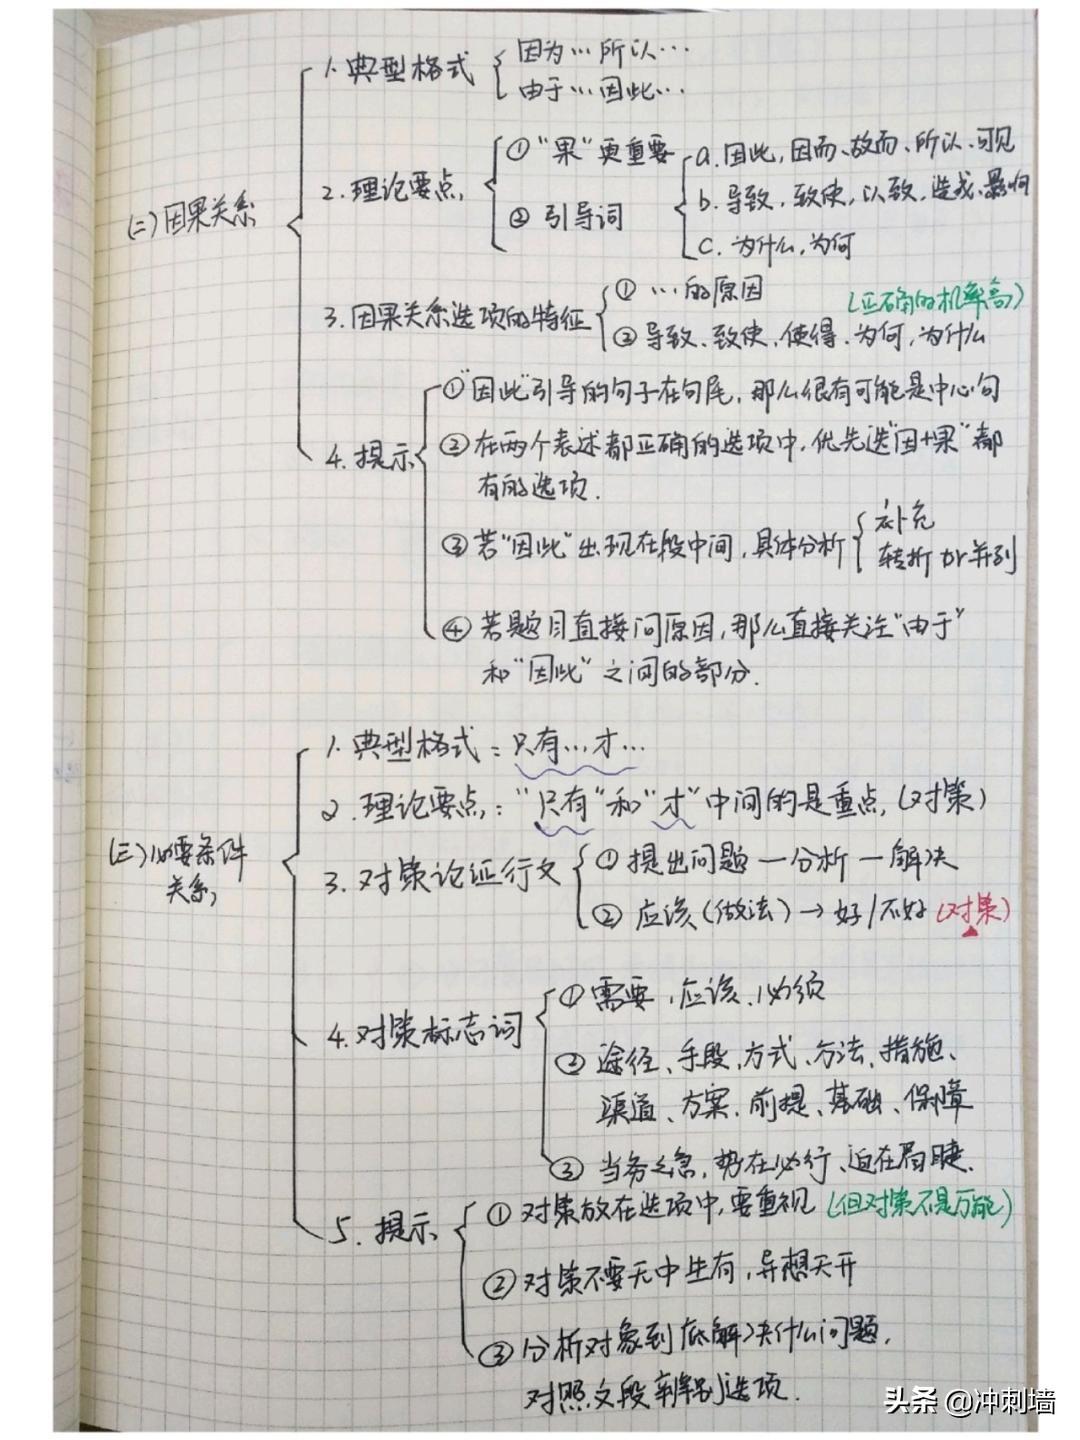 (二)因果关系
1. 典型格式
因为…所以…
由于…因此…
2. 理论要点
① "果"更重要
② 引导词
a. 因此，因而、故而、所以、可见
b. 导致，致使，以致，造成、影响
c. 为什么，为何
3. 因果关系选项的特征
① …的原因
(正确的机率高)
② 导致、致使、使得、为何，为什么
4. 提示
① "因此"引导的句子在句尾，那么很有可能是中心句
② 在两个表述都正确的选项中，优先选"因+果"都
有的选项.
③ 若"因此"出现在段中间，具体分析
补充
转折 or 并列
④ 若题目直接问原因，那么直接关注"由于"
和"因此"之间的部分.
(三)必要条件
关系
1. 典型格式：只有…才…
2. 理论要点："只有"和"才"中间的是重点，(对策)
3. 对策论证行文
① 提出问题—分析—解决
② 应该(做法)→好/不好(对策)
4. 对策标志词
① 需要，应该、必须
② 途径、手段，方式、方法、措施、
渠道、方案、前提、基础、保障
③ 当务之急，势在必行、迫在眉睫.
5. 提示
① 对策放在选项中，要重视(但对策不是万能)
② 对策不要无中生有，异想天开
③ 分析对象到底解决什么问题，
对照文段辨别选项.
头条 @冲刺墙